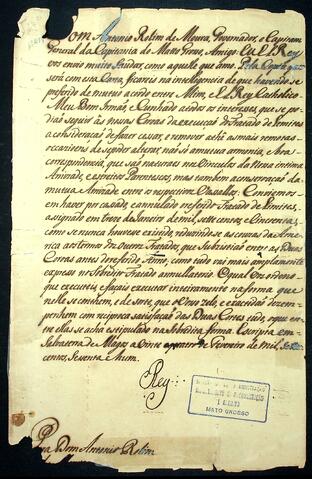 Dom Antonio Rolim de Moura, Governador, e Capitam
General da Capitania de Mato Groso, Amigo. Eu El Rey
vos envio muito Saudar, como aquelle que amo. Pela Copia que
será com esta Carta, ficareis na inteligencia de que havendo se
preferido de mutuo acordo entre Mim, e El Rey Catholico
Meu Bom Irmão, e Cunhado a todos os interesses, que se po-
dião seguir ás nossas Coroas da execução do Tratado de Limites,
a consideração de fazer cessar, e remover até as mais remotas
occazioens de se poder alterar, não só a mutua armonia, e boa
correspondencia, que são naturaes nos vinculos da Nossa intima
Amizade, e estreito Parentesco, mas tambem a conservação
da mutua Amizade entre os respectivos Vassallos: Conviemos
em haver por cassado, e annullado o referido Tratado de Limites,
assignado em treze de Janeiro de mil, sete centos, e cincoenta;
como se nunca houvese existido, reduzindo se as couzas da Ame-
rica aos termos dos outros Tratados, que subsistião entre as Duas
Coroas antes do referido Anno; como tudo vai mais amplamente
expreso no sobredito Tratado annullatorio. O qual vos ordeno
que executeis, e façais executar inteiramente na forma que
nelle se contem, e de sorte, que o vosso zelo, e exacidão dezem-
penhem com reciproca satisfação das Duas Cortes tudo, o que en-
tre ellas se acha estipulado na sobredita forma. Escripta em
Salvaterra de Magos a vinte e quatro de Fevereiro de mil, sete
centos, sesenta e hum.
Rey
MATO GROSSO
Para Dom Antonio Rolim